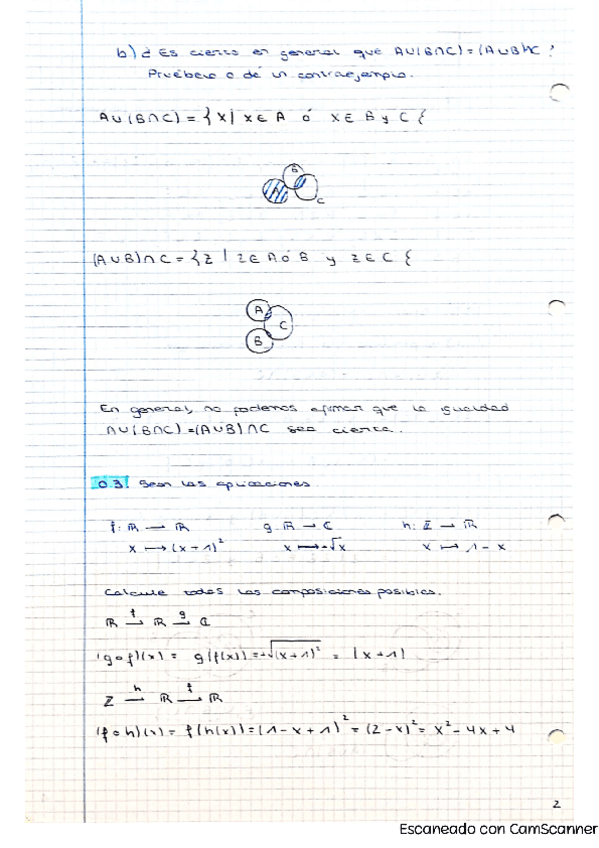 b) ¿ Es cierto en general que A∪(B∩C)=(A∪B)∩C?
Pruébelo o dé un contraejemplo.
A∪(B∩C) = {x | x ∈ A ó x ∈ B y C {
B
A
C
(A∪B)∩C = {z | z ∈ A ó B y z ∈ C {
A
C
B
En general, no podemos afirmar que la igualdad
A∪(B∩C)=(A∪B)∩C sea cierta.
03. Sean las aplicaciones.
f: ℝ → ℝ g: ℝ → ℂ h: ℤ → ℝ
x ↦ (x+1)² x ↦ +√x x ↦ 1-x
Calcule todas las composiciones posibles.
ℝ →f ℝ →g ℂ
(g∘f)(x) = g(f(x)) = +√(x+1)² = |x+1|
ℤ →h ℝ →f ℝ
(f∘h)(x) = f(h(x)) = (1-x+1)² = (2-x)² = x²-4x+4
2
Escaneado con CamScanner